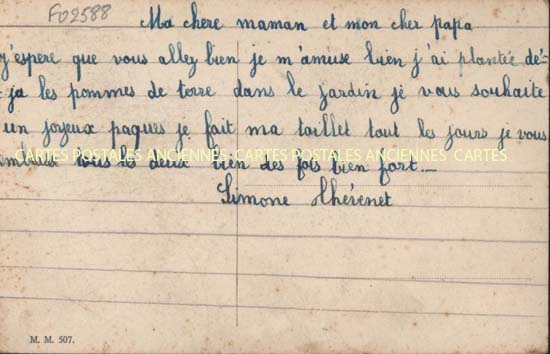 FO2588
Ma chere maman et mon cher papa
j'espere que vous allez bien je m'amuse bien j'ai plantée dé-
-ja les pommes de terre dans le jardin je vous souhaite
un joyeux paques je fait ma toillet tout les jours je vous
CARTES POSTALES ANCIENNES CARTES POSTALES ANCIENNES CARTES
tous les deux bien des fois bien fort._
Simone
M. M. 507.